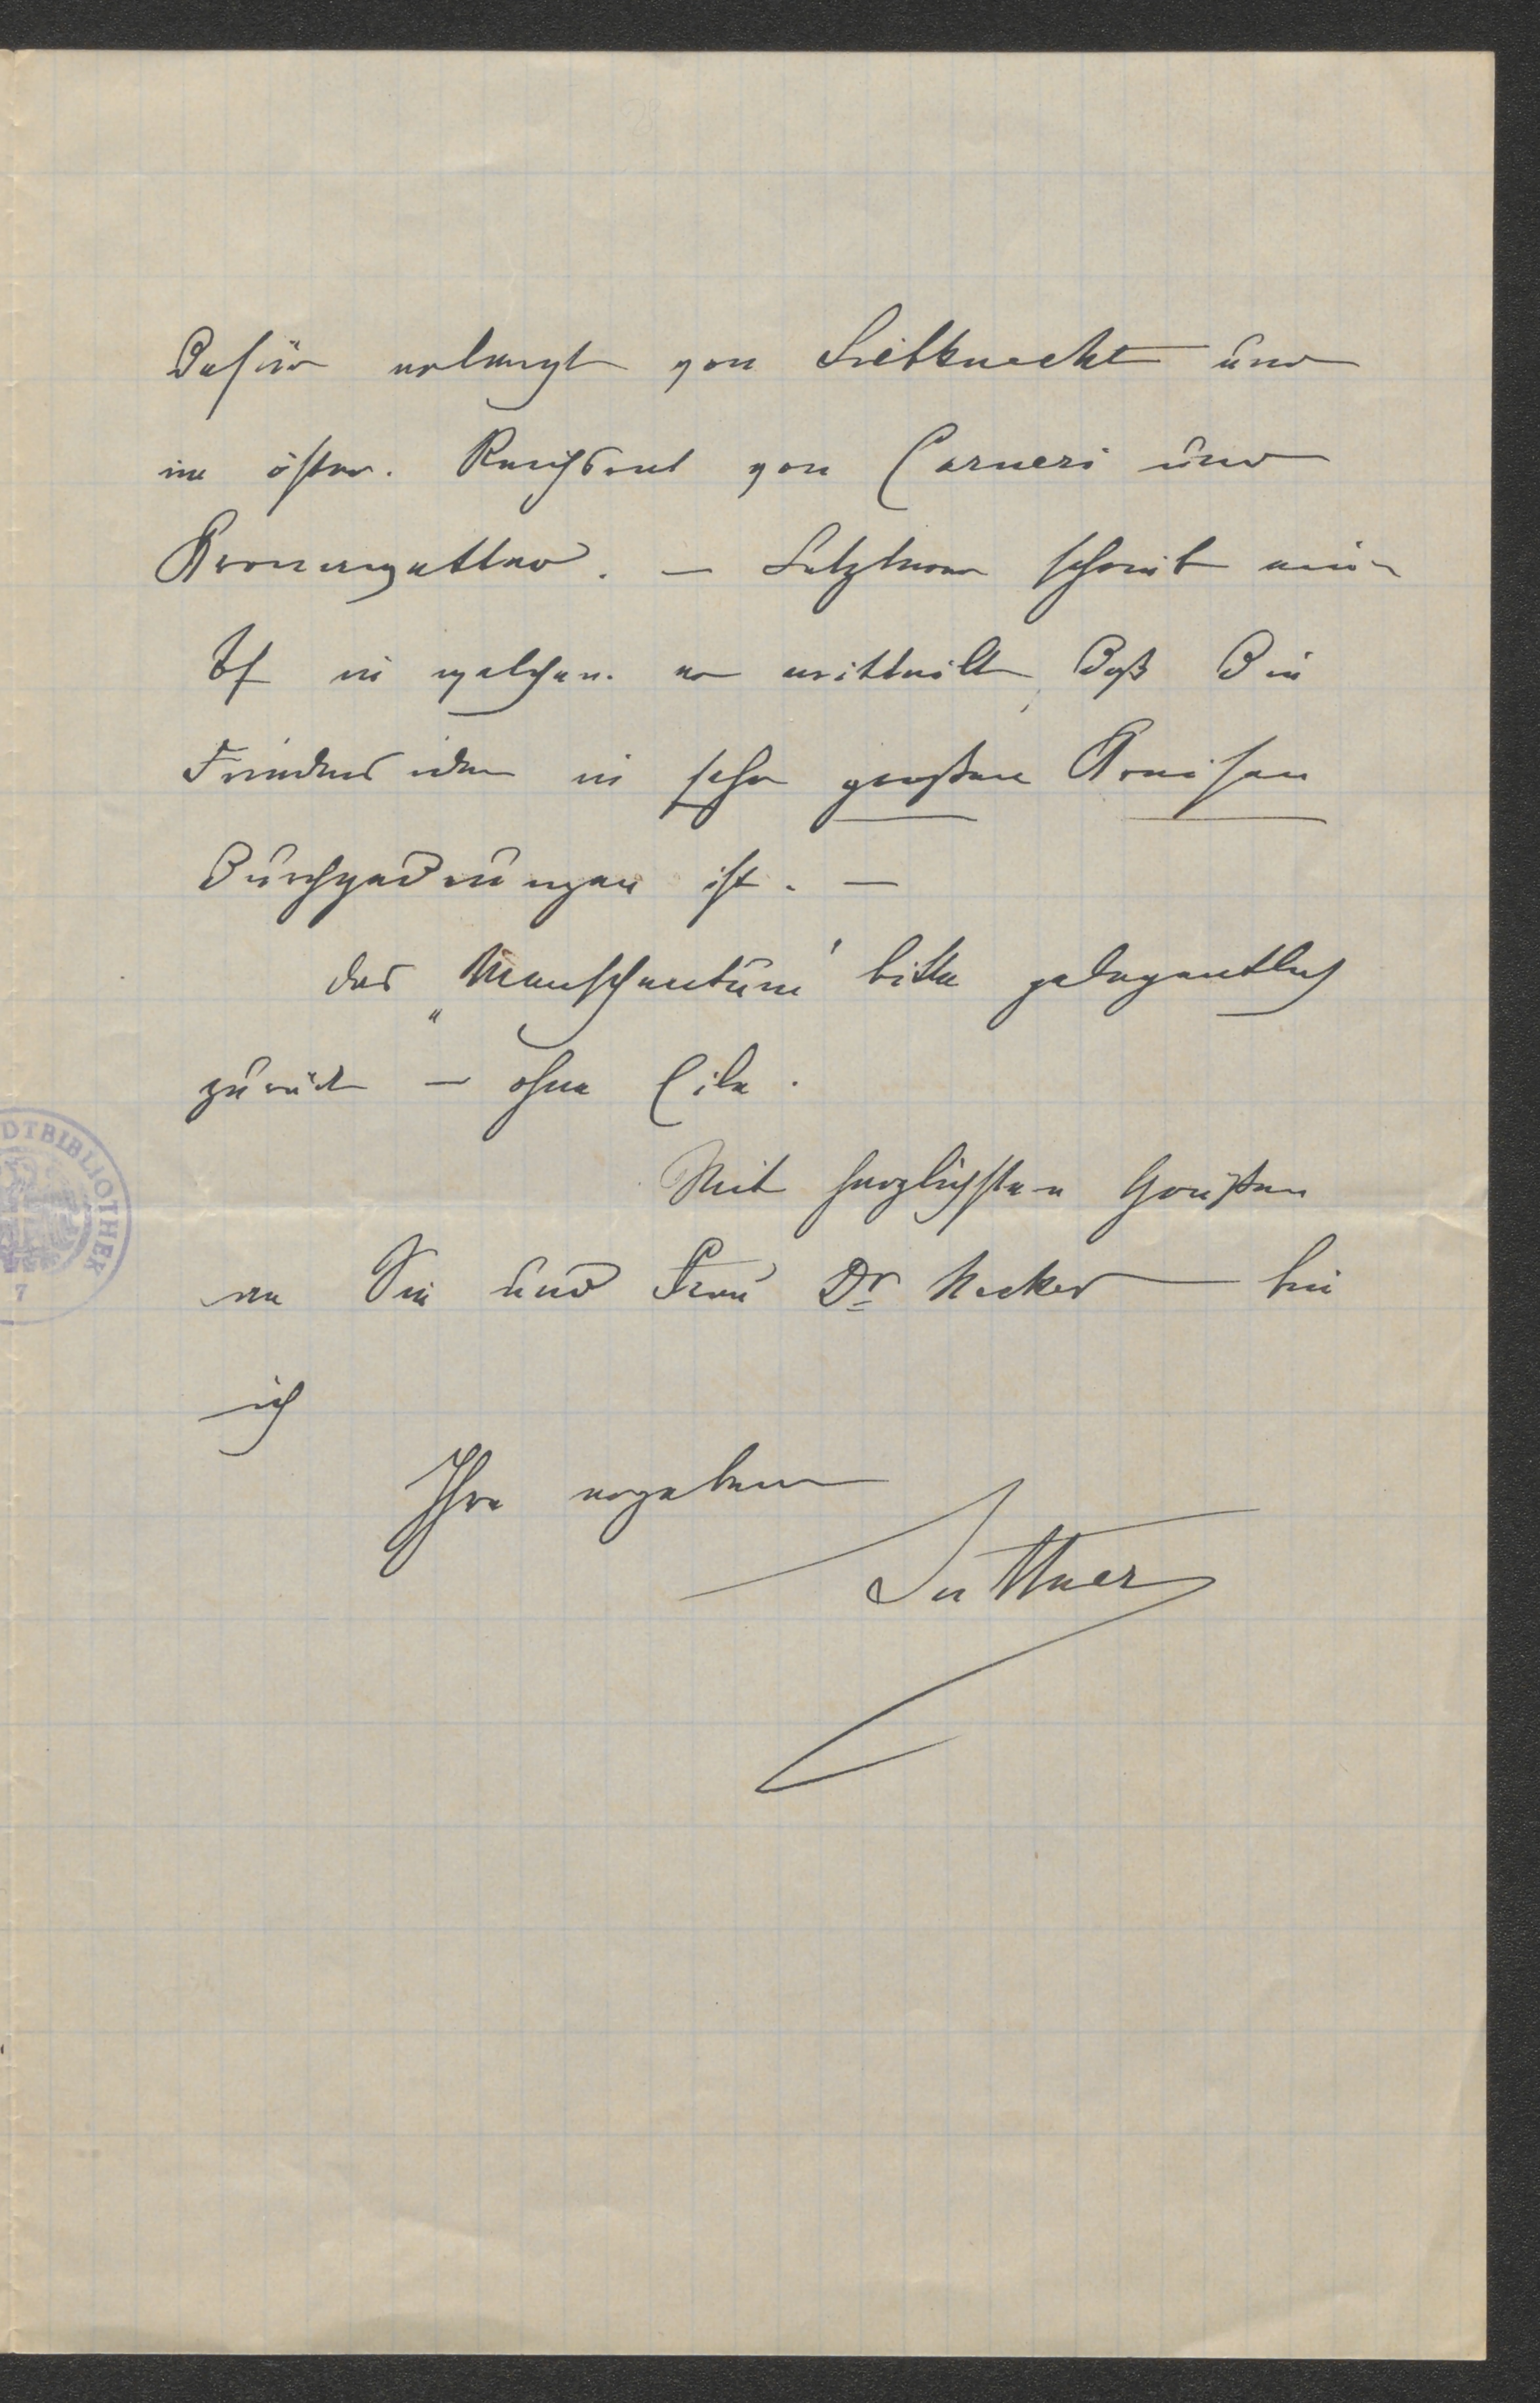 Dafür erlangt von Liebknecht und
im öster. Reichsrat von Carneri und
Kronawetter. — Letzterer schrieb
Bf in welchem er mittheilt, daß die
Friedensidee in sehr großen Kreisen
durchgedrungen ist. —
Das „Menschentum" bitte gelegentlich
zurück — ohne Eile.
Mit herzlichsten Grüßen
an Sie und Frau Dr Necker bin
ich
Ihre ergebene
Suttner
DTBIBLIOTHEK
7